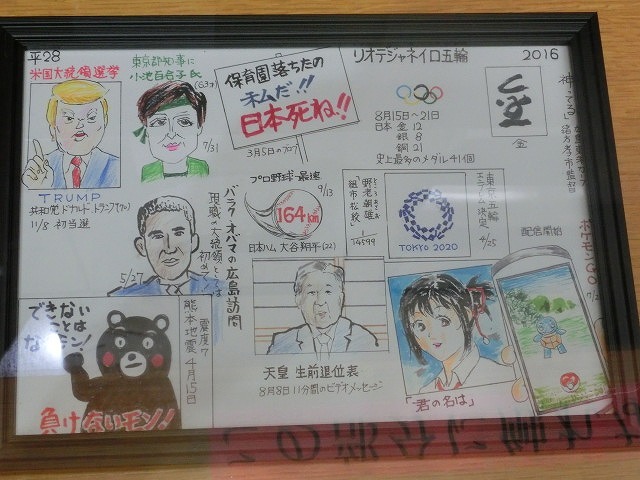 平28
2016
米国大統領選挙
TRUMP
共和党 ドナルド トランプ(70)
11/8 初当選
東京都知事に
小池百合子氏
(63才)
7/31
保育園落ちたの
私だ!!
日本死ね!!
3月5日のブログ
リオデジャネイロ五輪
8月15日〜21日
日本 金 12
銀 8
銅 21
史上最多のメダル41個
金
金
神ってる
緒方孝市監督
5/27
バラク・オバマの広島訪問
現職の大統領としては
初めて
プロ野球最速
9/13
164km
日本ハム 大谷翔平(22)
東京五輪
エンブレム決定
4/25
野老朝雄
組市松紋
1/14599
TOKYO 2020
配信開始
ポケモンGO
できない
ことは
ないモン!
負けないモン!
震度7
熊本地震 4月15日
天皇 生前退位表
8月8日 11分間のビデオメッセージ
「君の名は」